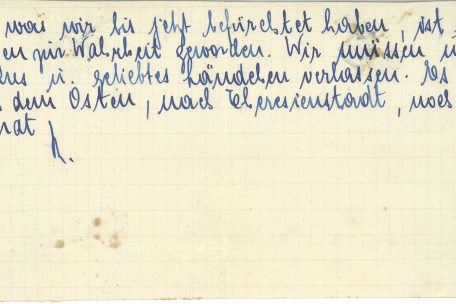 was wir bis jetzt befürchtet haben, ist
en zur Wahrheit geworden. Wir müssen u
us u. geliebtes Ländchen verlassen. Es
dem Osten, nach Theresienstadt, noch